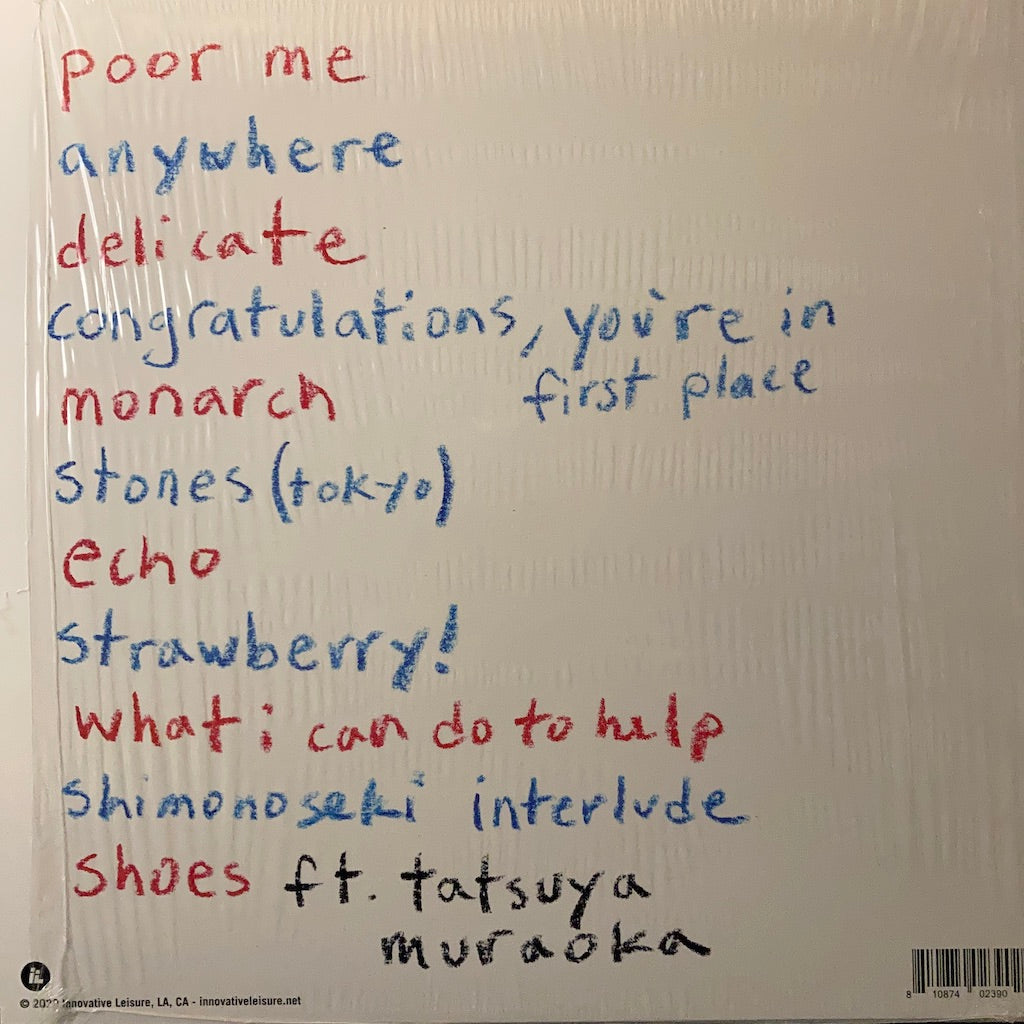 poor me
anywhere
delicate
congratulations, you're in
first place
monarch
stones (tokyo)
echo
strawberry!
what i can do to help
shimonoseki interlude
shoes ft. tatsuya
muraoka
iL
© Innovative Leisure, LA, CA - innovativeleisure.net
8 10874 02390